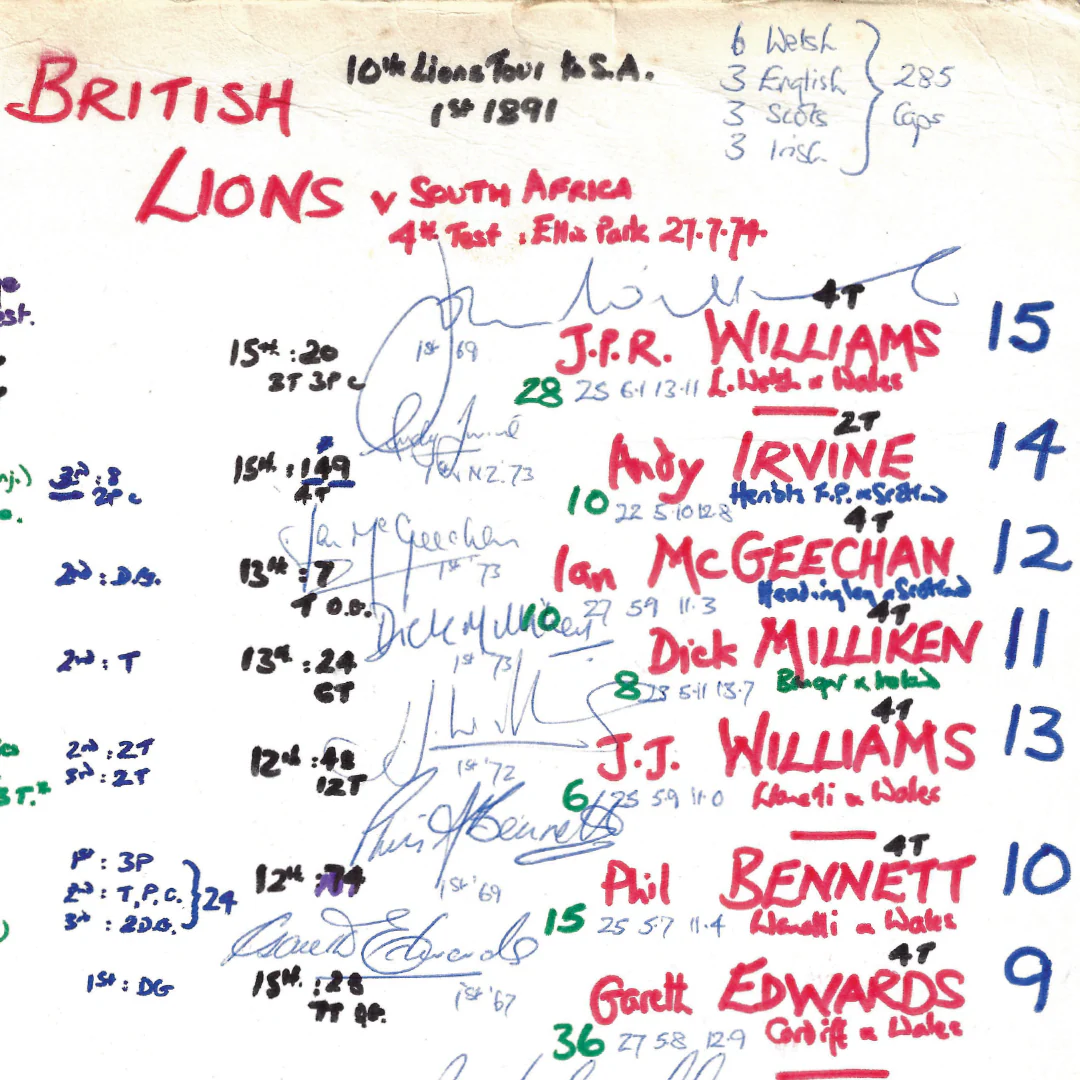 BRITISH
LIONS v SOUTH AFRICA
10th Lions Tour to S.A.
1st 1891
6 Welsh
3 English
3 Scots
3 Irish
285
Caps
4th Test : Ellis Park 27.7.74.
4T
15th : 20
3T 3P C
1st '69
J.P.R. WILLIAMS 15
28 25 6.1 13.11 L. Welsh & Wales
2T
Andy Irvine
3rd : 8
2P C
15th : 149
4T
1st v N.Z. '73
Andy IRVINE 14
10 22 5.10 12.8 Heriots F.P. & Scotland
4T
Ian McGeechan
2nd : D.G.
13th : 7
T D.G.
1st '73
Ian McGEECHAN 12
10 27 5.9 11.3 Headingley & Scotland
4T
Dick Milliken
2nd : T
13th : 24
6T
1st '73
Dick MILLIKEN 11
8 23 5.11 13.7 Bangor & Ireland
4T
2nd : 2T
3rd : 2T
12th : 48
12T
1st '72
J.J. WILLIAMS 13
6 25 5.9 11.0 Llanelli & Wales
4T
Phil Bennett
1st : 3P
2nd : T, P. C.
3rd : 2D.G.
24
12th : 74
1st '69
Phil BENNETT 10
15 25 5.7 11.4 Llanelli & Wales
4T
Gareth Edwards
1st : DG
15th : 28
7T
1st '67
Gareth EDWARDS 9
36 27 5.8 12.9 Cardiff & Wales